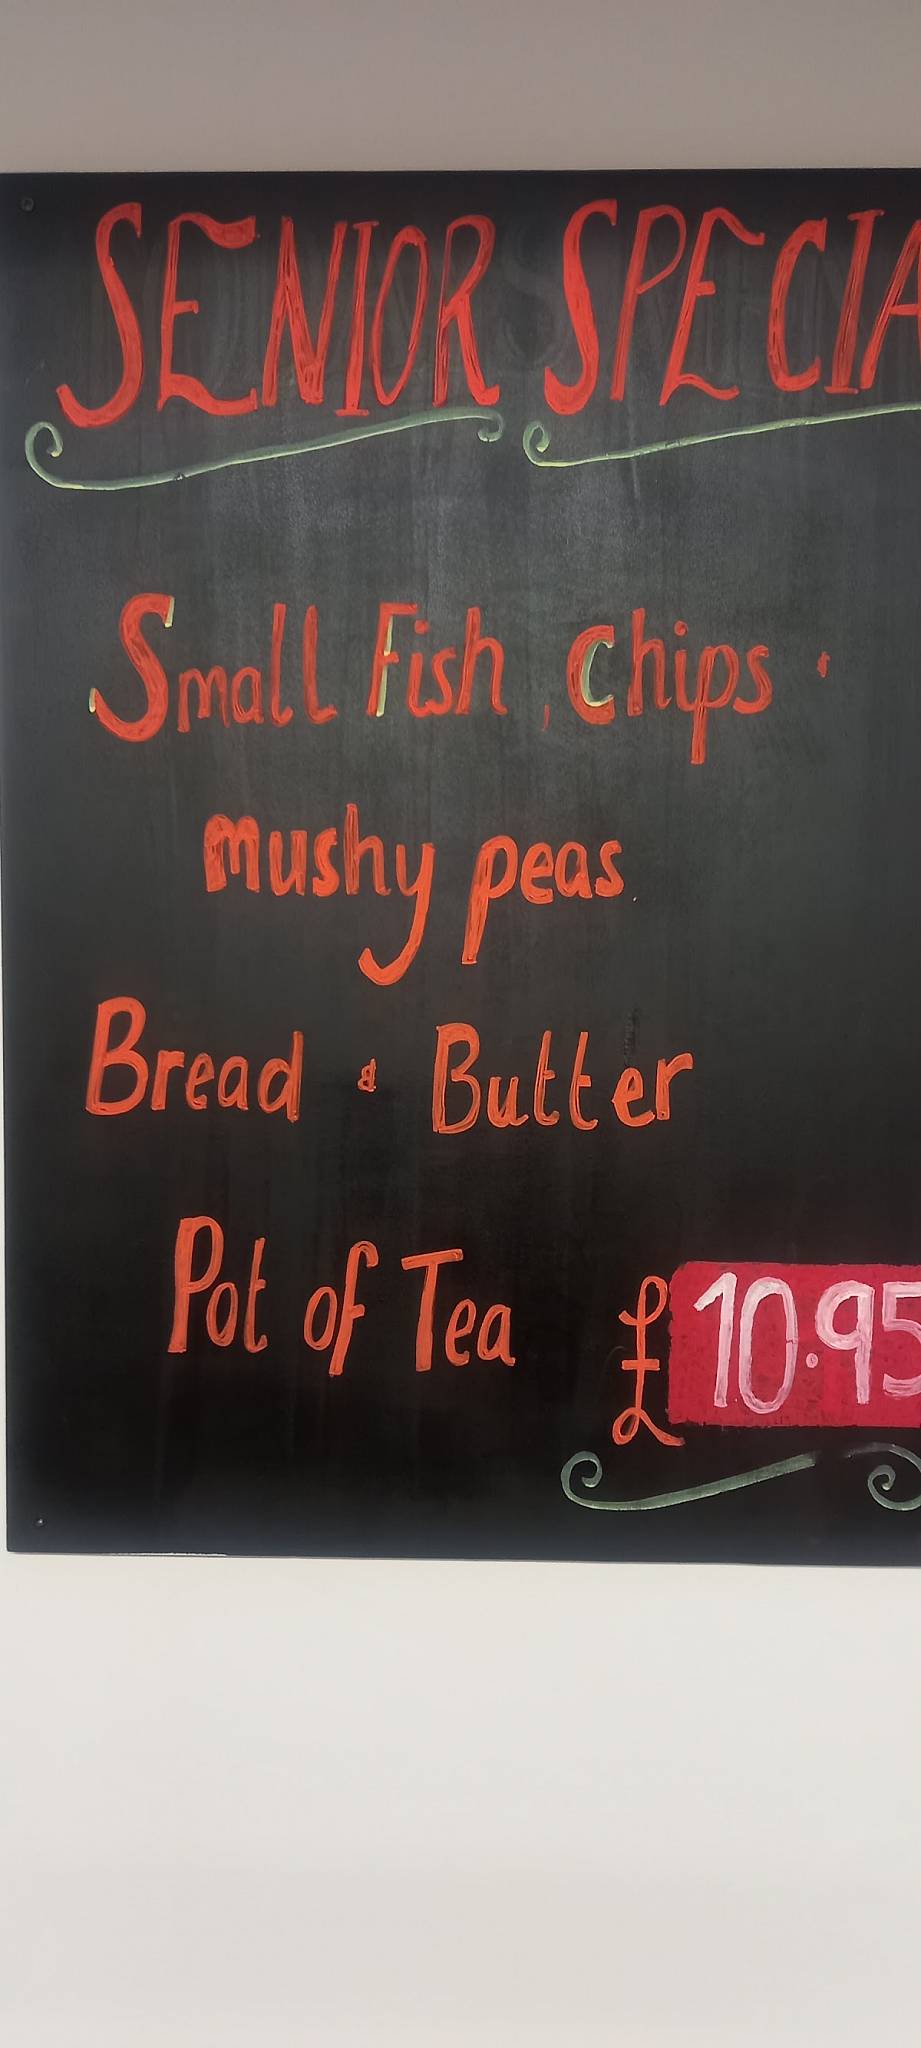 SENIOR SPECIA
Small Fish, Chips &
mushy peas.
Bread & Butter
Pot of Tea £10.95